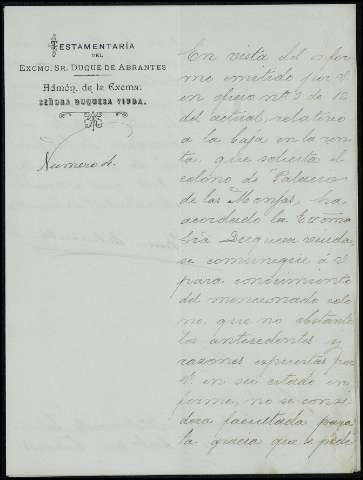 TESTAMENTARÍA
DEL
EXCMO. SR. DUQUE DE ABRANTES
Admón. de la Excma.
SEÑORA DUQUESA VIUDA.
Numero 4.
En vista del infor
me emitido por V.
en oficio nº 3 de 12
del actual, relativo
a la baja en la ren
ta que solicita el
colono de Palacio
de las Monjas, ha
acordado la Excma
Sra Duquesa viuda,
se comunique á V.
para conocimiento
del mencionado colo
no, que no obstante
los antecedentes y
razones espuestas por
V. en su citado in
forme, no se consi
dera facultada para
la gracia que se pide